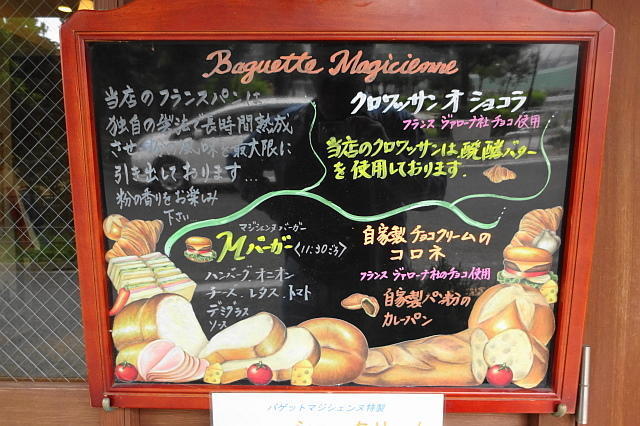 Baguette Magicienne
当店のフランスパンは
独自の製法で長時間熟成
させ 味を最大限に
引き出しております...
粉の香りをお楽しみ
下さい
クロワッサンオショコラ
フランス ヴァローナ社チョコ使用
当店のクロワッサンは醗酵バター
を使用しております.
マジシェンヌバーガー
Mバーガー〈11:30ごろ〉
ハンバーグ オニオン
チーズ.レタス.トマト
デミグラス
ソース
自家製チョコクリームの
コロネ
フランス ヴァローナ社のチョコ使用
自家製パン粉の
カレーパン
バゲットマジシェンヌ特製